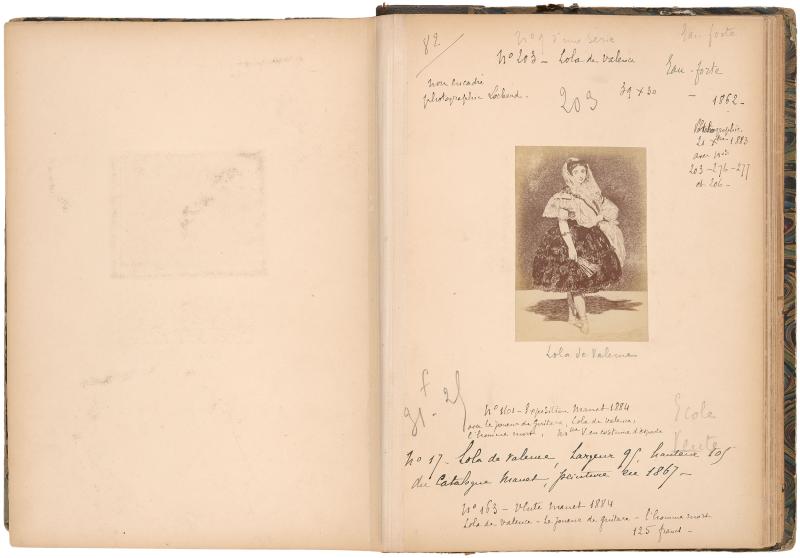 82
Nº 9 d'une serie
Eau forte
Nº 203 - Lola de Valence
Eau-forte
non encadré
photographie Lochard.
203
39 x 30
- 1862 -
Photographie
21 Xbre 1883
avec Nos
203-276-277
et 206-
Lola de Valence
f
91 - 25
Ecole
Vente
Nº 161 - Exposition Manet 1884
avec le joueur de guitare, Lola de Valence,
l'homme mort, Mlle V. en costume d'espada
Nº 17. Lola de Valence, Largeur 95. hauteur 105
du Catalogue Manet, peinture en 1867 -
Nº 163 - Vente Manet 1884
Lola de Valence - Le joueur de guitare - l'homme mort
125 francs -